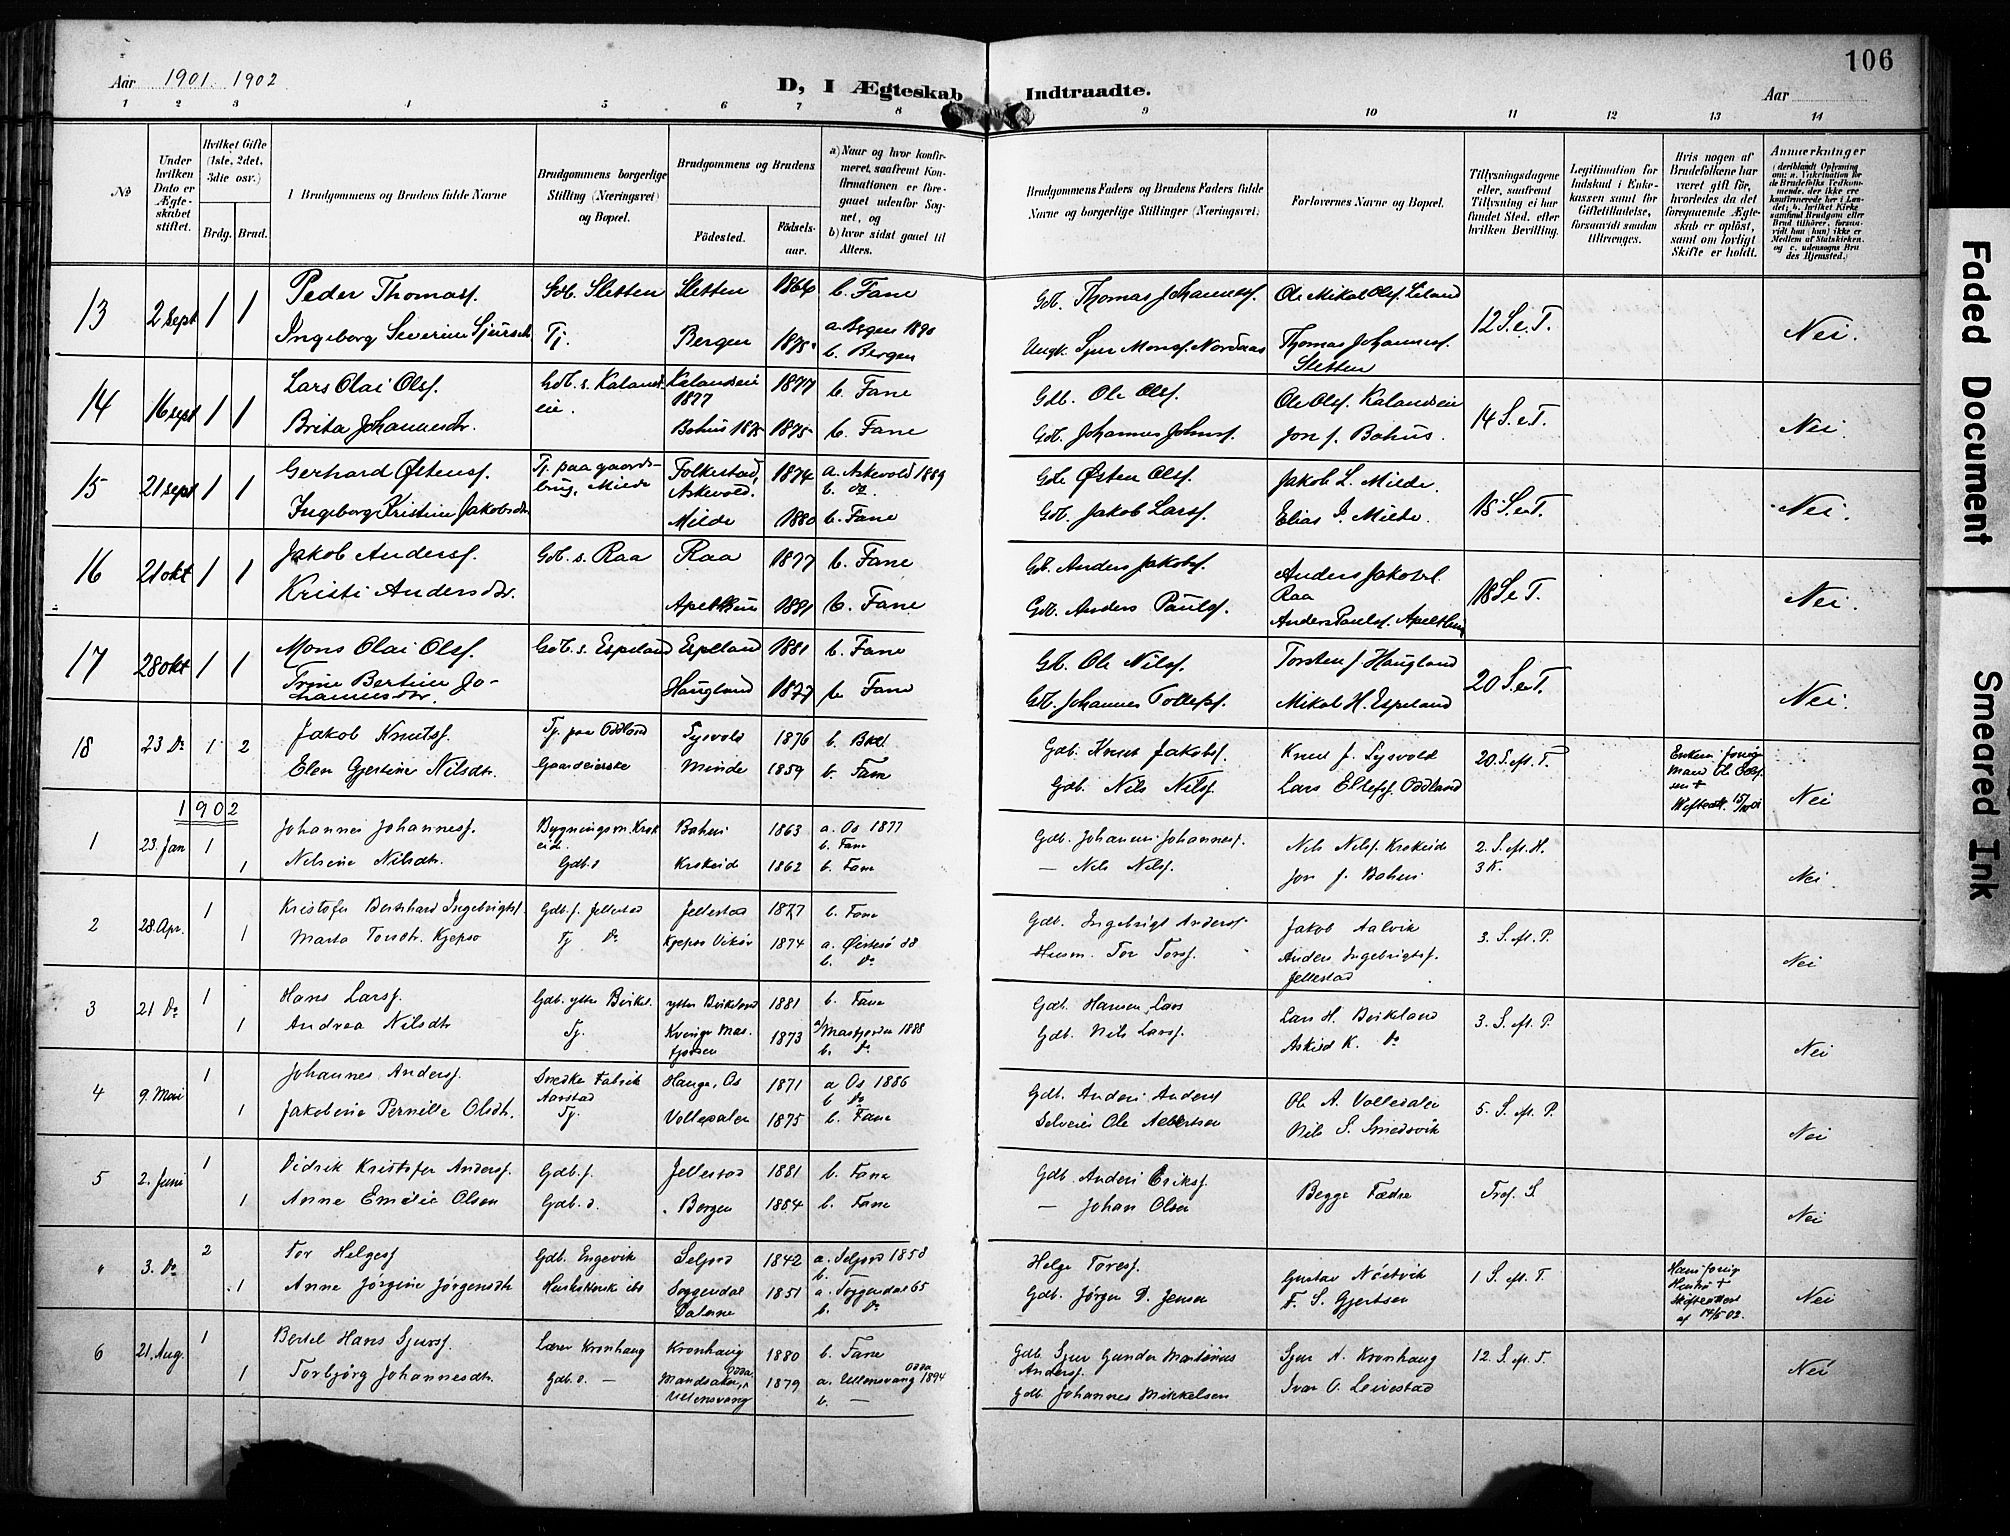 106
Aar 1901. 1902
D, I Ægteskab Indtraadte.
Aar
1 2 3 4 5 6 7 8 9 10 11 12 13 14
No
Under hvilken Dato er Ægteskabet stiftet.
Hvilket Gifte (1ste, 2det, 3die osv.)
Brdg. Brud.
Brudgommens og Brudens fulde Navne
Brudgommens borgerlige Stilling (Næringsvei) og Bopæl.
Brudgommens og Brudens
Fødested. Fødselsaar.
a) Naar og hvor konfirmeret, saafremt Konfirmationen er foregaaet udenfor Sognet, og
b) hvor sidst gaaet til Alters.
Brudgommens Faders og Brudens Faders fulde Navne og borgerlige Stillinger (Næringsvei)
Forlovernes Navne og Bopæl.
Tillysningsdagene eller, saafremt Tillysning ei har fundet Sted, efter hvilken Bevilling.
Legitimation for Indskud i Enkekassen samt for Giftetilladelse, forsaavidt saadan tiltrænges.
Hvis nogen af Brudefolkene har været gift før, hvorledes da det foregaaende Ægteskab er opløst, samt om lovligt Skifte er holdt.
Anmærkninger
13 2 Sept 1 1 Peder Thomasf. Gdb. Sletten Sletten 1866 b. Fane Gdb. Thomas Johannesf. Ole Mikal Olsf. Liland 12 S. e. T. Nei.
Ingeborg Severine Sjursdtr Tj. Bergen 1875 a. Bergen 1890 b. Bergen Ungk. Sjur Monsf. Nordaas Thomas Johannesf. Sletten
14 16 sept 1 1 Lars Olai Olsf. Gdb. s. Kalandseie. Kalandseie 1877 1877 b. Fane Gdb. Ole Olsf. Ole Olsf. Kalandseie 14 S. e. T. Nei.
Brita Johannesdtr. Bahus 1875 1875 b. Fane Gdb. Johannes Johnsf. Jon J. Bahus.
15 21 sept 1 1 Gerhard Østensf. Tj. paa gaardsbrug, Milde Folkestad, Askevold. 1874 a. Askevold 1889 b. do. Gdb. Østen Olsf. Jakob L. Milde. 15 S. e. T. Nei.
Ingeborg Kristine Jakobsdtr Milde 1880 b. Fane Gdb. Jakob Larsf. Elias J. Milde.
16 21 okt 1 1 Jakob Andersf. Gdb. s. Raa Raa 1877 b. Fane Gdb. Anders Jakobsf. Anders Jakobsf. Raa 18 S. e. T. Nei.
Kristi Andersdtr. Apelthun 1881 b. Fane Gdb. Anders Paulsf. Anders Paulsf. Apelthun
17 28 okt 1 1 Mons Olai Olsf. Gdb. s. Espeland Espeland 1881 b. Fane Gdb. Ole Nilsf. Torsten J. Haugland 20 S. e. T. Nei.
Trine Bertine Johannesdtr. Haugland 1877 b. Fane Gdb. Johannes Tollefsf. Mikal H. Espeland
18 23 Do 1 2 Jakob Knutsf. Tj. paa Oddland Lysvold 1876 b. Gdb. Knut Jakobsf. Knut J. Lysvold 20. S. eft. T. Nei
Elen Gjertine Nilsdtr. Gaardeierske Minde 1859 b. Fane Gdb. Nils Nilsf. Lars Oddland
1902
1 23. Jan 1 Johannes Johannesf. Bygningsm. Krokeide. Bahus 1863 a. Os 1877 b. Fane Gdb. Johannes Johannesf. Nils Nilsf. Krokeide 2. S. eft. H. 3 K. Nei.
1 Nilsine Nilsdtr. Gdb. d Krokeide 1862 b. Fane — Nils Nilsf. Jon J. Bahus
2 28. Apr. 1 Kristofer Bernhard Ingebrigtsf. Gdb. f. Jellestad Jellestad 1877 b. Fane Gdb. Ingebrigt Andersf. Jakob Aalvik 3. S. eft. P. Nei
1 Marta Torsdtr. Kjepso Tj Do Kjepso Vikør 1874 a. Østesø 88 b. Do Husm. Tor Torsf. Anders Ingebrigtsf. Jellestad
3 21 Do 1 Hans Larsf. Gdb. ytre Birkel. ytre Birkeland 1881 b. Fane Gdb. Hansen, Lars Lars H. Birkeland 3. S. eft. P. Nei
1 Andrea Nilsdtr Tj. Kvinge Masfjorden 1873 a. Masfjorden 1888 b. Do Gdb. Nils Larsf. Askild K. Do
4 9. Mai 1 Johannes Andersf. Snedker Fabrik Aarstad Hauge, Os 1871 a Os 1886 b Do Gdb. Anders Andersf Ole A. Volledalen 5. S. eft. P. Nei
1 Jakobine Pernille Olsdtr. Tj. Volledalen 1875 b. Fane Selveier Ole Aebertsen Nils S. Smedsvik
5 2. Juni 1 Didrik Kristofer Andersf. Gdb. f. Jellestad 1881 b. Fane Gdb. Anders Eriksf. Begge Fædre Tref. S. Nei
1 Anne Emilie Olsen Gdb. d. Bergen 1884 b. Fane — Johan Olsen
" 3. Do 2 Tor Helgesf Gdb. Engevik Seljord 1842 a. Seljord 1858 b. Helge Toresf. Gustav Nøstvik 1 S. eft. T. Hans forrige Hustru † Skifteattest af 14/5 02. Nei
1 Anne Jørgine Jørgensdtr Soggendal Dalane 1851 a. Soggendal 65 b. Do Gdb. Jørgen D. Jensen F. S. Gjertsen
6 21. Aug. 1 Bertel Hans Sjursf. Lærer Kronhaug Kronhaug 1880 b. Fane Gdb Sjur Gunder Martinus Andersf. Sjur A. Kronhaug 12. S. eft. T. Nei
1 Torbjørg Johannesdtr. Gdb. d. — Mandsaker, Odda, Ullensvang 1879 a. Ullensvang Odda 1894 b. — Gdb. Johannes Mikkelsen Ivar O. Leivestad
Faded Document
Smeared Ink